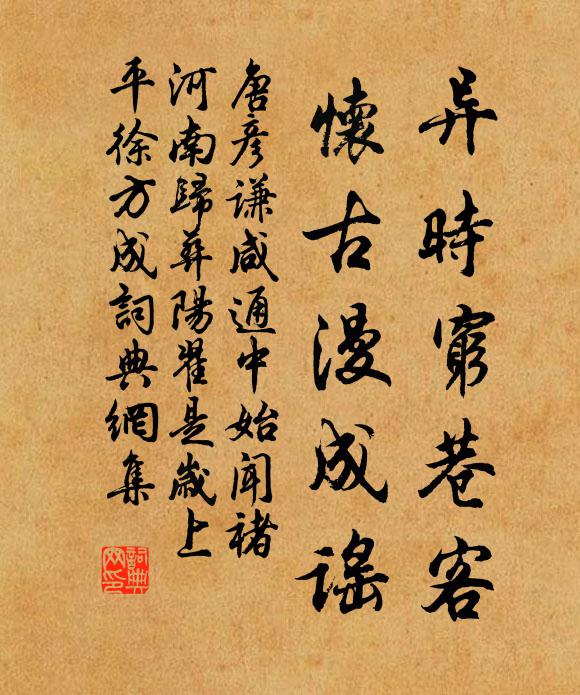 异時窮巷客
懷古漫成謠
唐彥謙咸通中始聞褚
河南歸葬陽翟是歲上
平徐方成詞典網集
詞典
网印